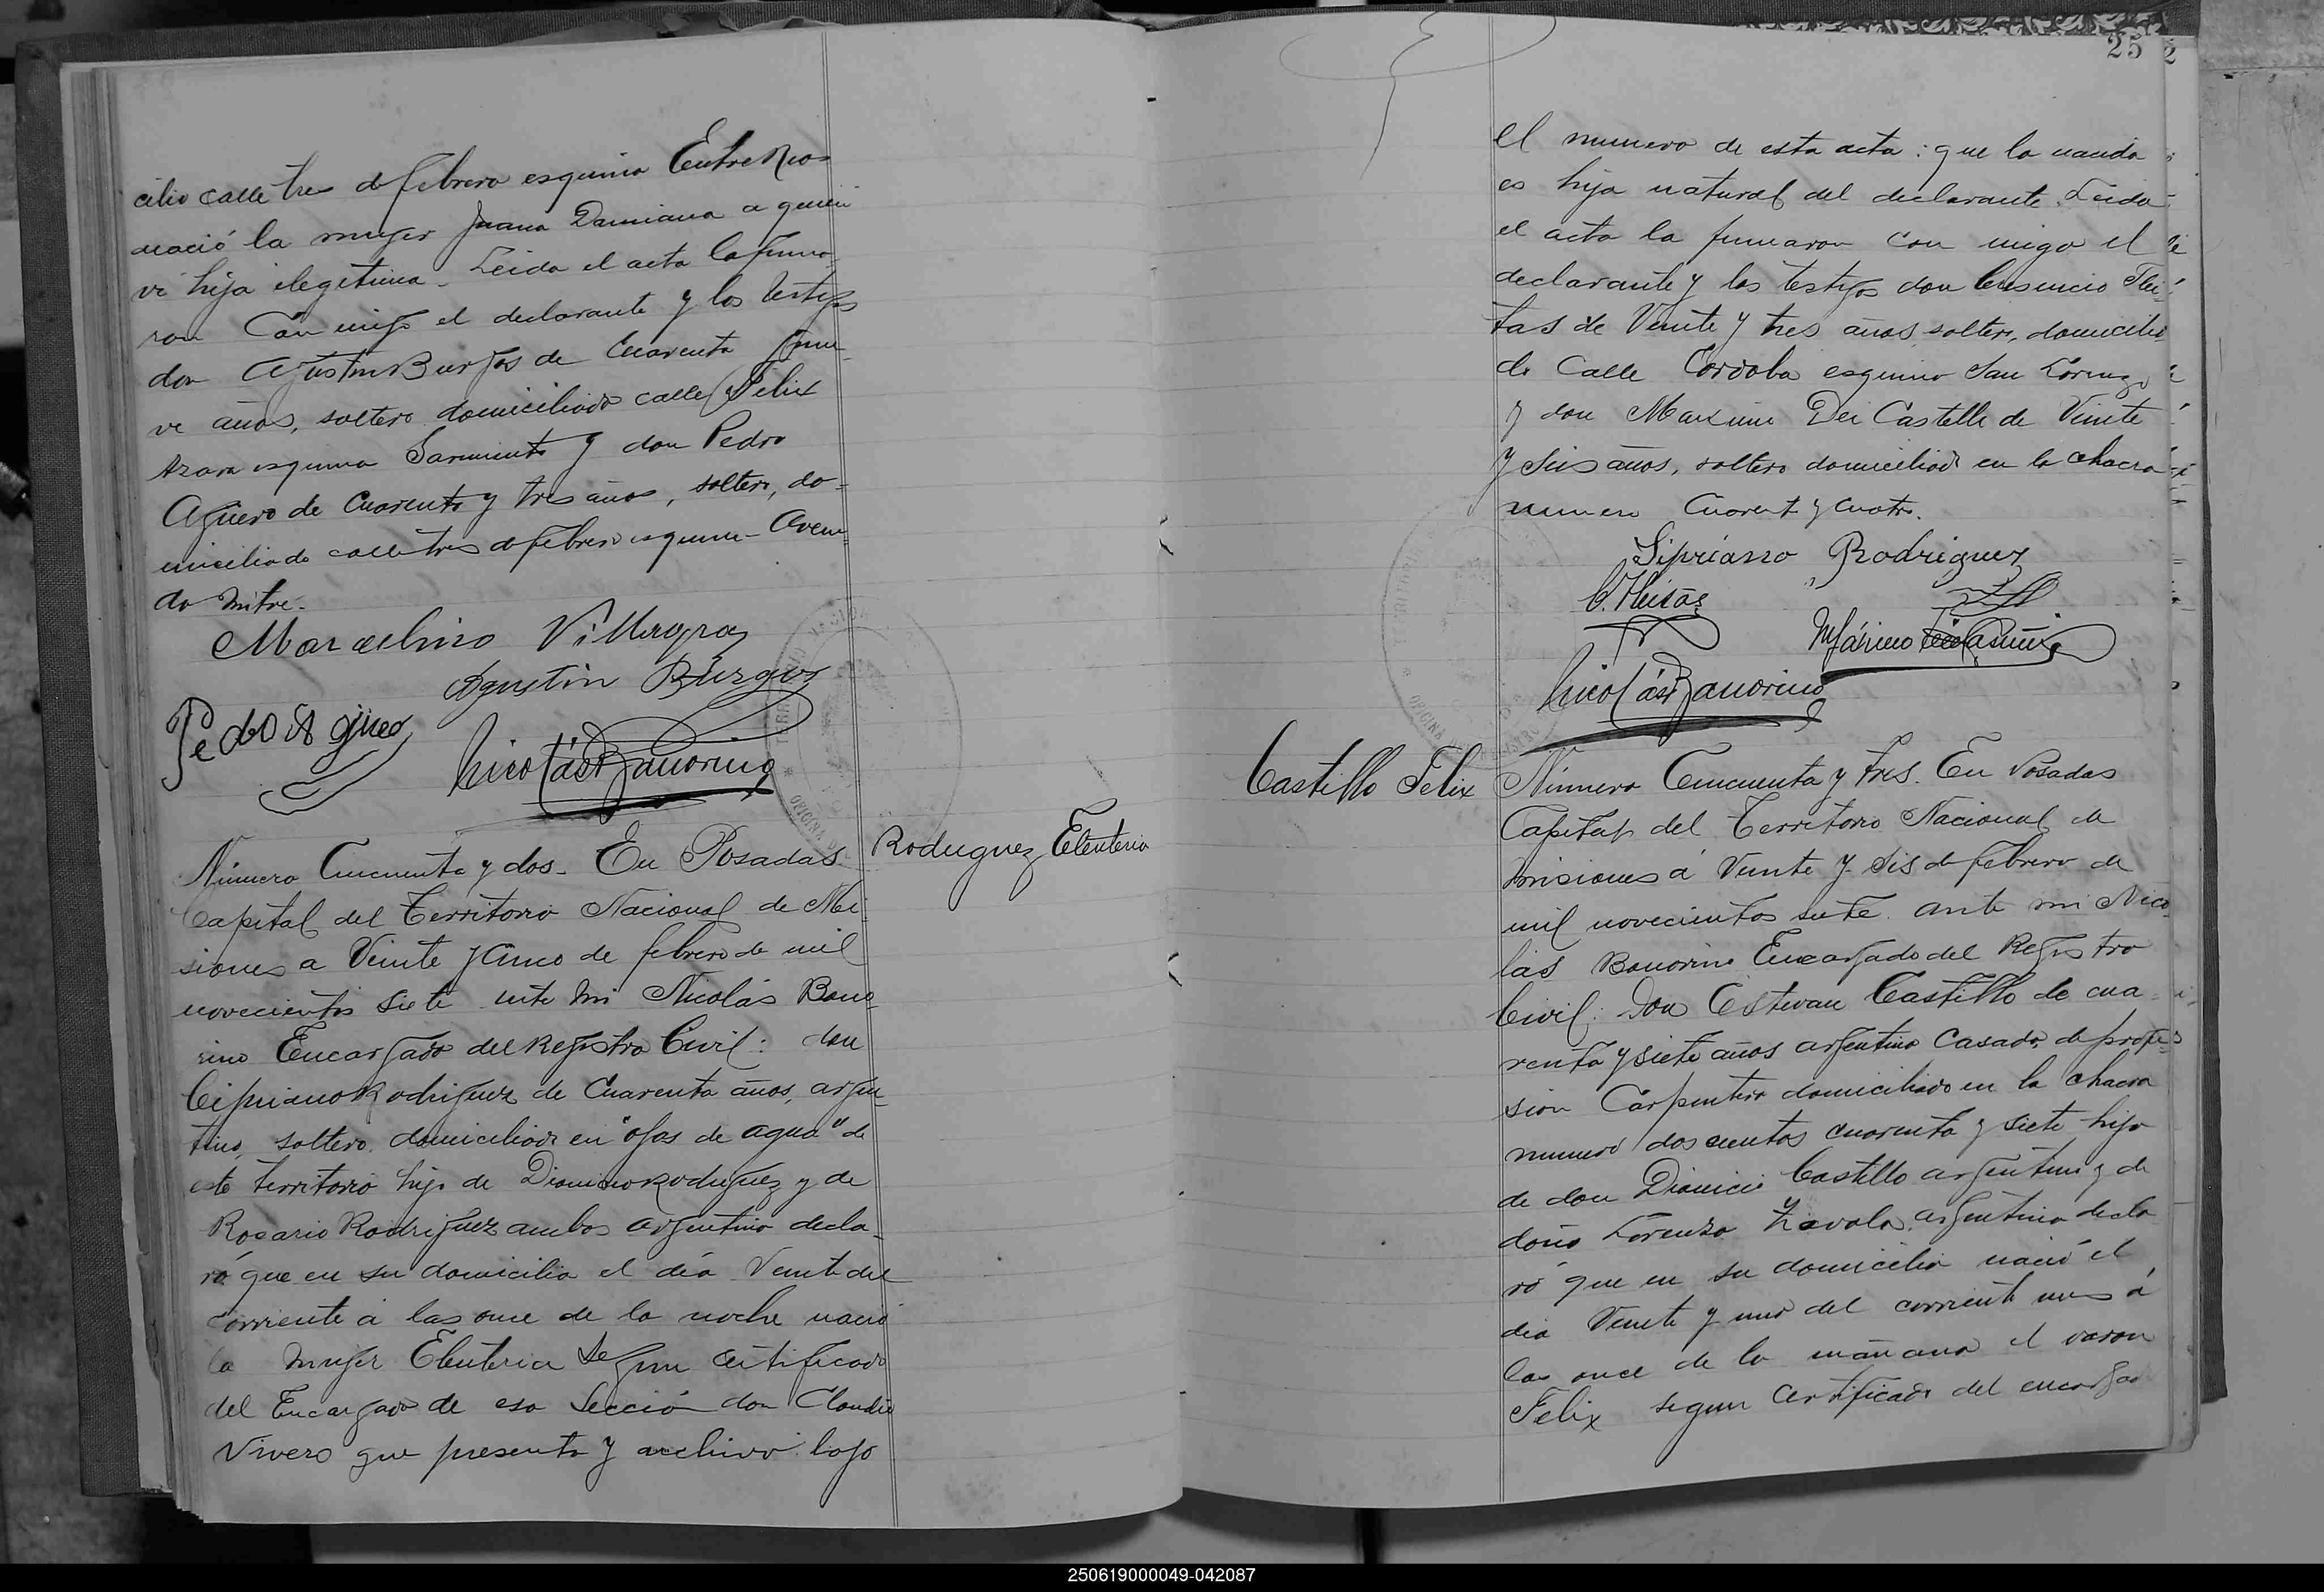 cilio calle tres de febrero esquina Entre Rios
nació la mujer Juana Damiana a quien
vi hija ilegitima. Leida el acta la firma-
ron con migo el declarante y los testigos
don Agustin Burgos de cuarenta y nue-
ve años, soltero domiciliado calle Felix
Azara esquina Sarmiento y don Pedro
Agüero de cuarenta y tres años, soltero, do-
miciliado calle tres de febrero esquina Aveni-
da Mitre.
Marcelino Villagra
Agustin Burgos
Pedro Agüero
Nicolás Bonorino
Rodriguez Eleuteria
Número Cincuenta y dos. En Posadas
Capital del Territorio Nacional de Mi-
siones a Veinte y cinco de febrero de mil
novecientos siete ante mi Nicolás Bono-
rino Encargado del Registro Civil: don
Cipriano Rodriguez de Cuarenta años, argen-
tino, soltero, domiciliado en "ojos de agua" de
este territorio hijo de Dionicio Rodriguez y de
Rosario Rodriguez ambos argentino decla-
ró que en su domicilio el día Veinte del
corriente á las once de la noche nació
la mujer Eleuteria segun certificado
del Encargado de esa Sección don Claudio
Vivero que presenta y archivo bajo
25
el numero de esta acta: que la nacida
es hija natural del declarante. Leida
el acta la firmaron con migo el
declarante y los testigos don Fleí-
tas de Veinte y tres años, soltero, domicilia
do Calle Cordoba esquina San Lorenzo
y don Maximo Dei Castelli de Veinte
y seis años, soltero domiciliado en la chacra
numero Cuarent y cuatro.
Sipriano Rodriguez
C. Fleitas
Máximo
Nicolás Bonorino
Castillo Felix
Número Cincuenta y tres. En Posadas
Capital del Territorio Nacional de
Misiones á Veinte y seis de febrero de
mil novecientos siete ante mi Nico-
lás Bonorino Encargado del Registro
Civil: Don Estevan Castillo de cua-
renta y siete años argentino Casado, de profe-
sion Carpintero domiciliado en la chacra
numero doscientos cuarenta y siete hijo
de don Dionicio Castillo argentino y de
doña Lorenza Zavala argentina decla
ró que en su domicilio nació el
dia Veinte y uno del corriente mes á
las once de la mañana el varon
Felix segun certificado del encargado
250619000049-042087